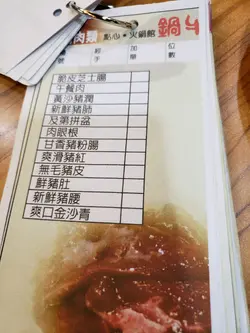 肉類 點心·火鍋館 鍋4
號 經手 加單 位數
脆皮芝士腸
午餐肉
黃沙豬潤
新鮮豬肺
及第拼盆
肉眼根
甘香豬粉腸
爽滑豬紅
無毛豬皮
鮮豬肚
新鮮豬腰
爽口金沙青